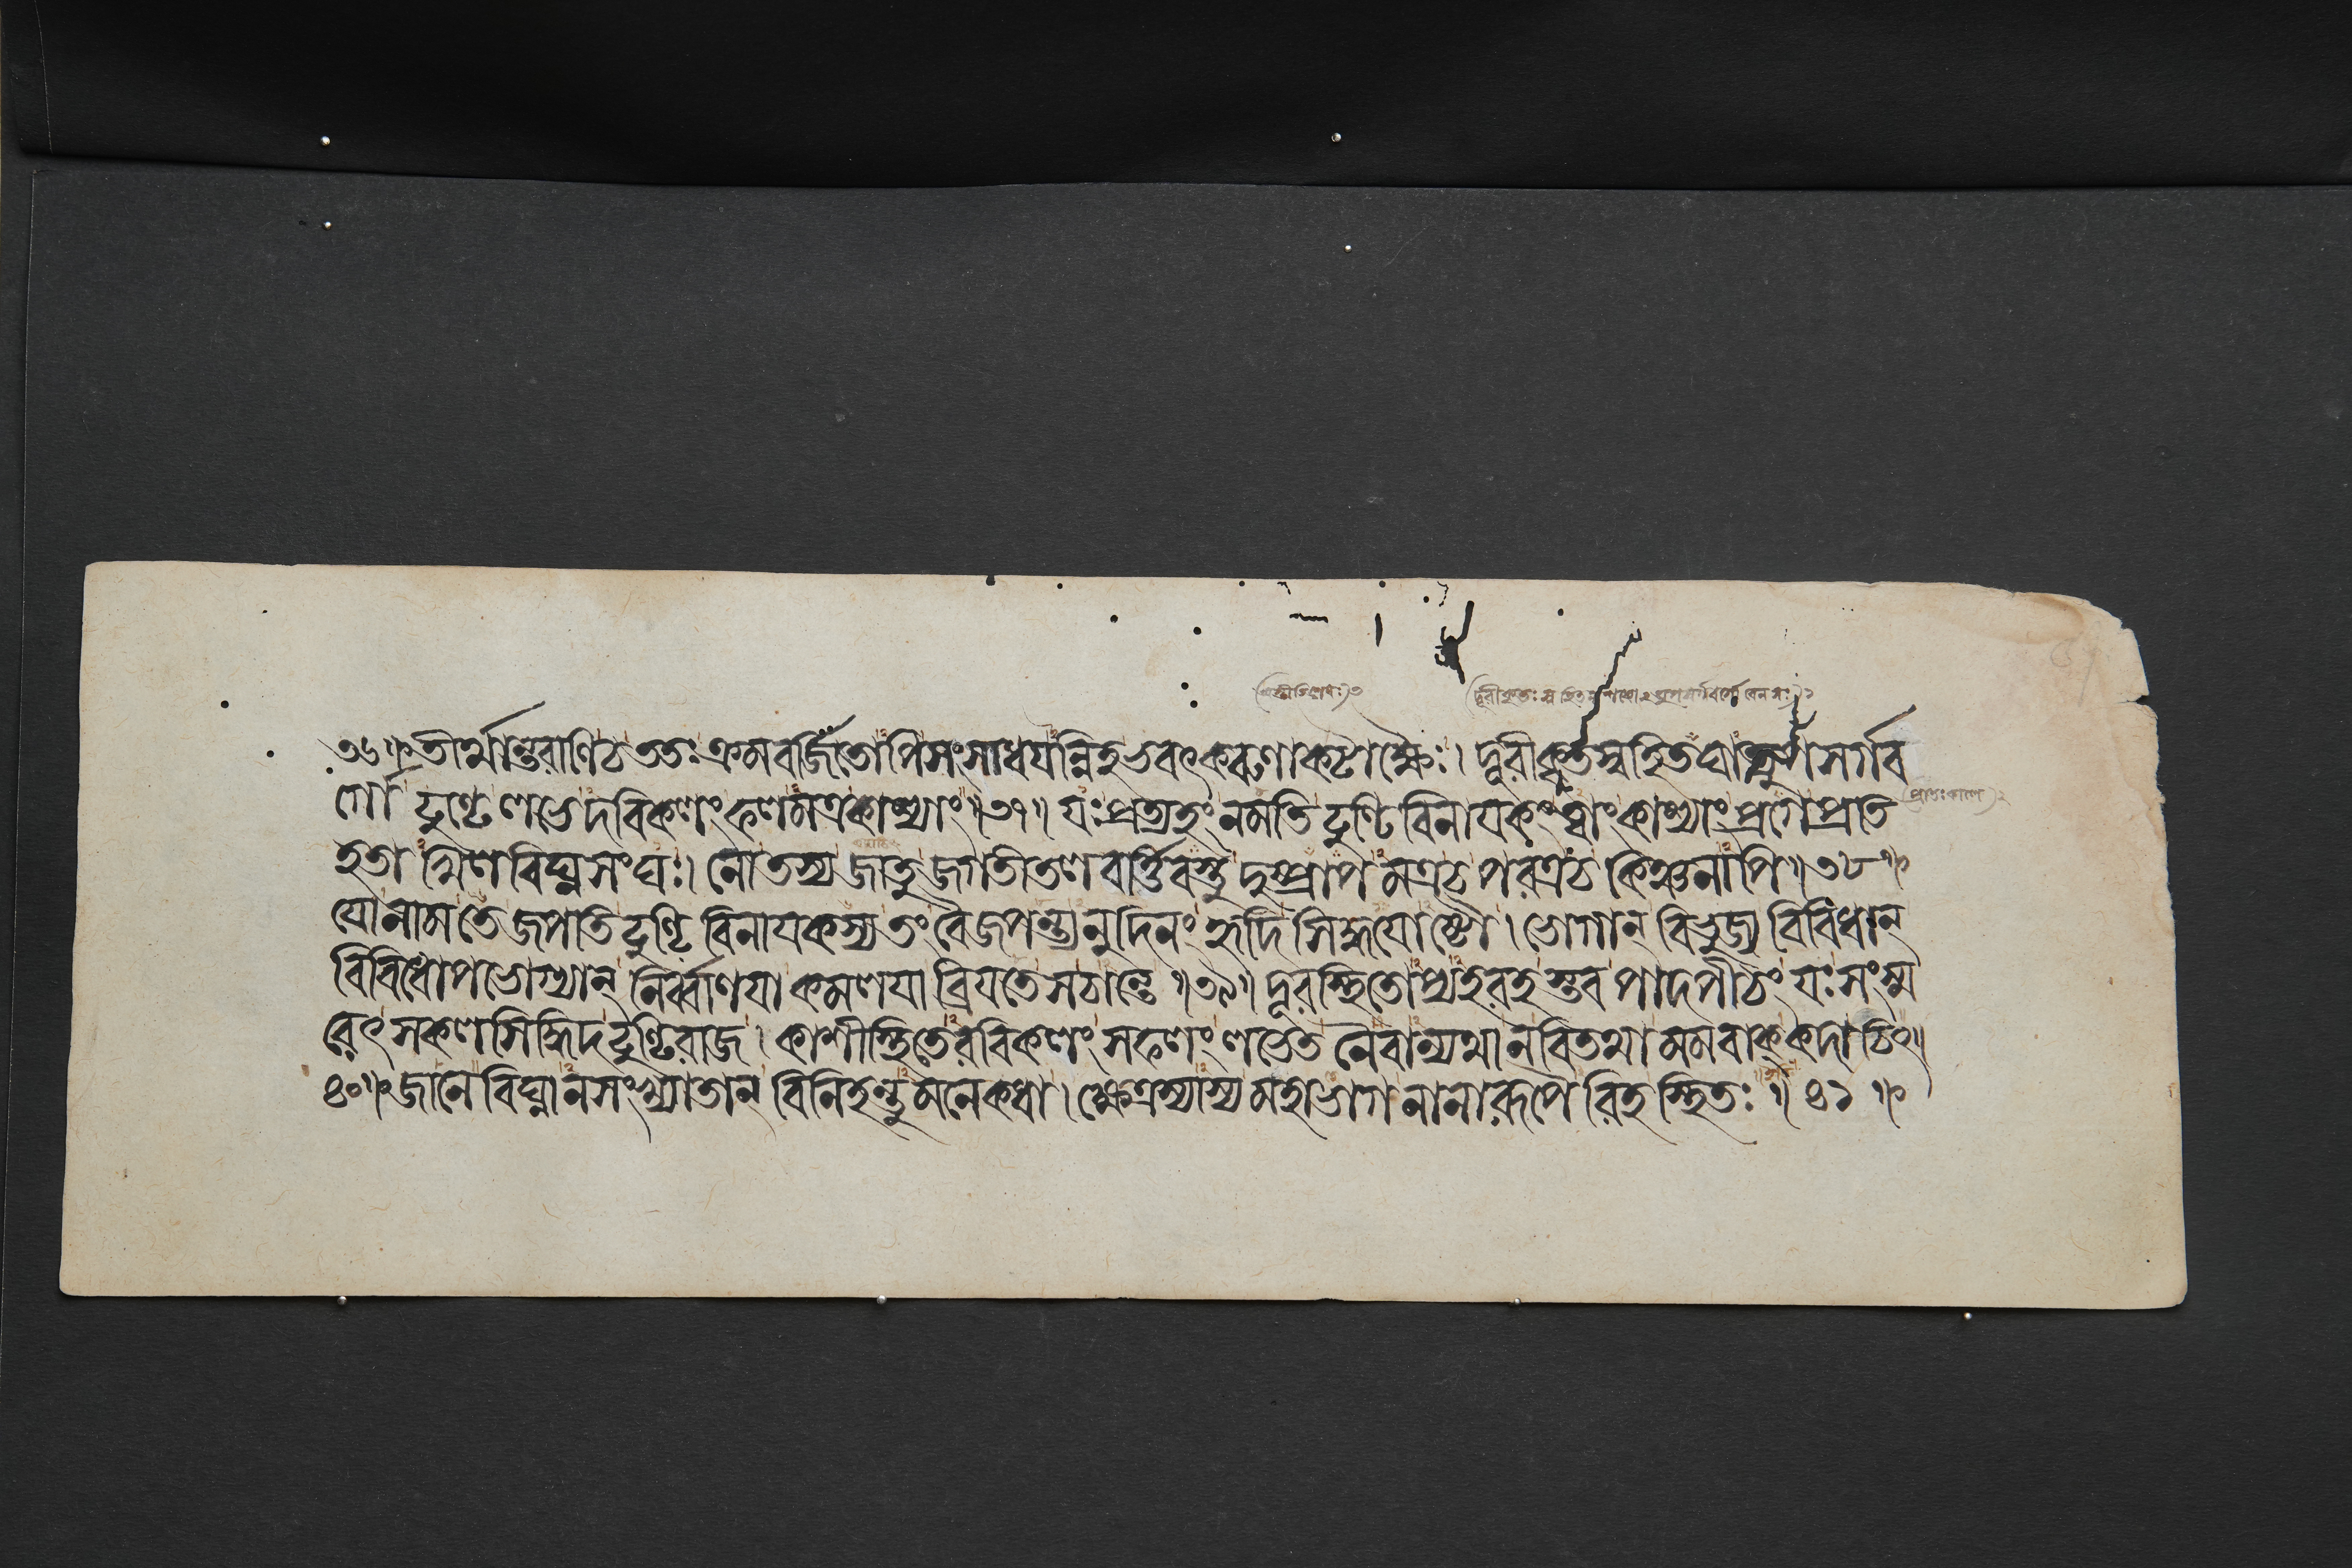 (দূরীকৃতঃ স্বহিত
৩৬॥ তীর্থান্তরাণি চ ততঃ ক্রমবর্জিতোপি সংসাধযন্নিহ ভবৎকরুণাকটাক্ষৈঃ। দূরীকৃতস্বহিতঘাত্যুপসর্গব
র্গো ঢুণ্ঢে লভেদবিকলং ফলমত্রকাশ্যাং॥৩৭॥ যঃ প্রত্যহং নমতি ঢুণ্ঢিবিনাযকং ত্বাং কাশ্যাং প্রগে প্রতি (প্রাতঃকালে)২
হতাখিলবিঘ্নসংঘঃ। নো তস্য জাতু জগতীতলবর্ত্তিবস্তু দুষ্প্রাপমত্র চ পরত্র চ কিঞ্চনাপি॥৩৮॥
যো নাম তে জপতি ঢুণ্ঢিবিনাযকস্য তং বৈ জপন্ত্যনুদিনং হৃদি সিদ্ধযোষ্টৌ। ভোগান্ বিভুজ্য বিবিধান্
বিবিধোপভোগ্যান্ নির্ব্বাণযা কমলযা ব্রিযতে সচান্তে॥৩৯॥ দূরস্থিতোপ্যহরহস্তব পাদপীঠং যঃ সংস্ম
রেৎ সকলসিদ্ধিদ ঢুণ্ঢিরাজ। কাশীস্থিতেরবিকলং সফলং লভেত নৈবান্যথা নবিতথা মমবাক্ কদাচিৎ॥
৪০॥ জানে বিঘ্নানসংখ্যাতান্ বিনিহন্তুমনেকধা। ক্ষেত্রস্যাস্য মহাভাগ নানারূপৈরিহ স্থিতঃ॥৪১॥